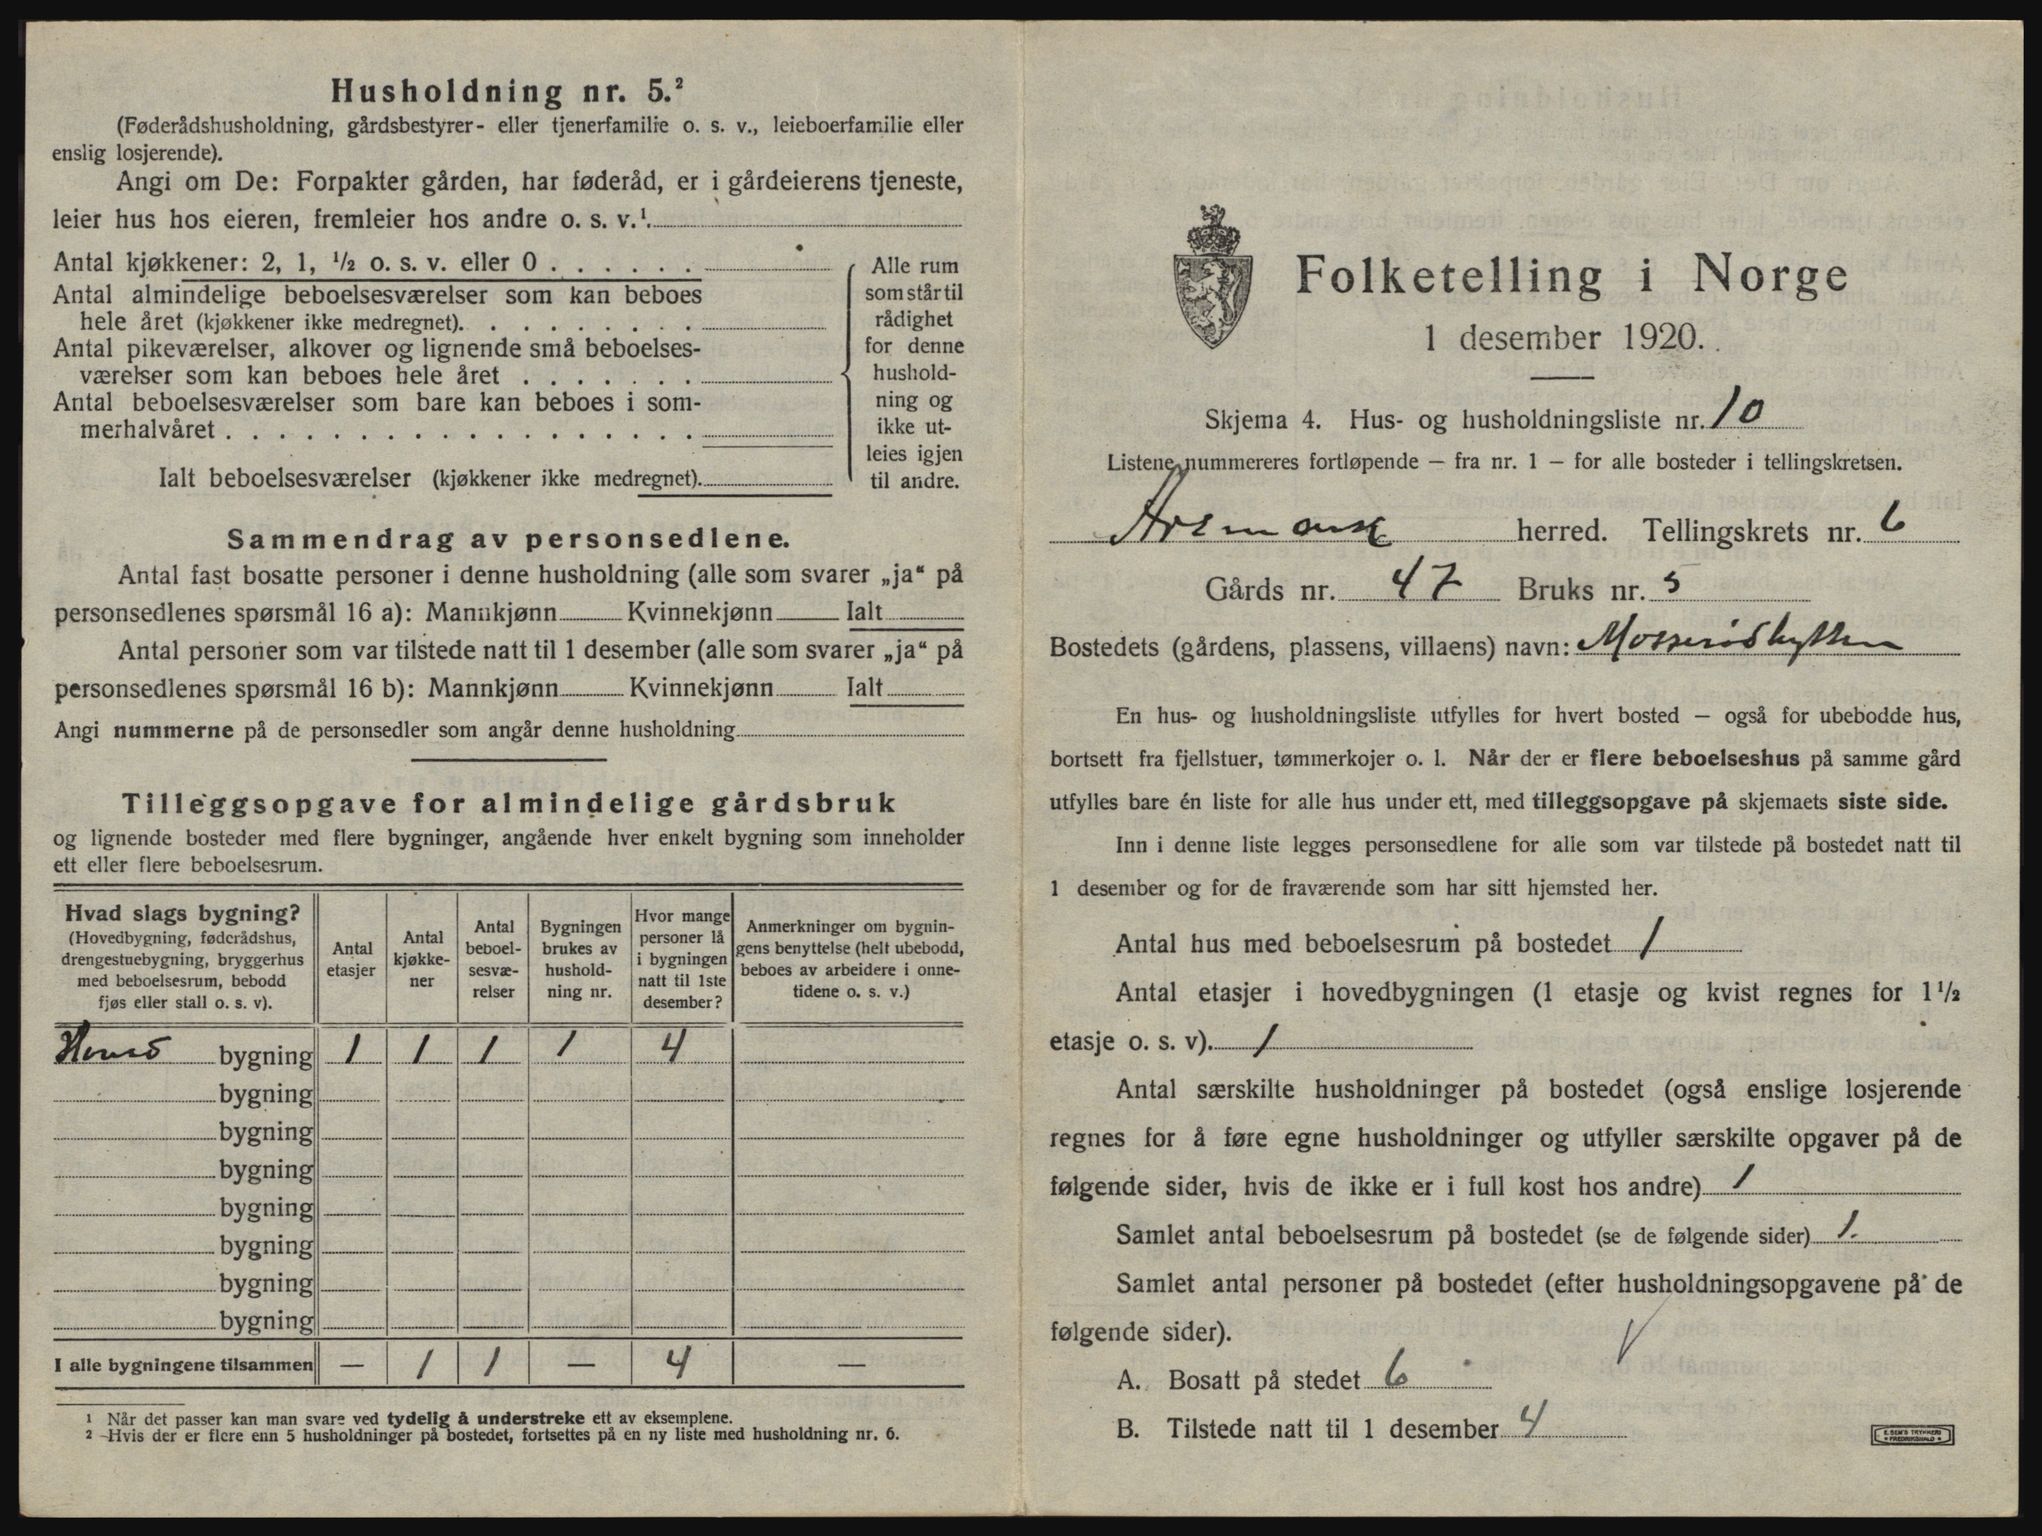 Husholdning nr. 5.²
(Føderådshusholdning, gårdsbestyrer- eller tjenerfamilie o. s. v., leieboerfamilie eller
enslig losjerende).
Angi om De: Forpakter gården, har føderåd, er i gårdeierens tjeneste,
leier hus hos eieren, fremleier hos andre o. s. v.¹
Antal kjøkkener: 2, 1, ½ o. s. v. eller 0
Antal almindelige beboelsesværelser som kan beboes
hele året (kjøkkener ikke medregnet).
Antal pikeværelser, alkover og lignende små beboelses-
værelser som kan beboes hele året
Antal beboelsesværelser som bare kan beboes i som-
merhalvåret
Ialt beboelsesværelser (kjøkkener ikke medregnet).
Alle rum
som står til
rådighet
for denne
hushold-
ning og
ikke ut-
leies igjen
til andre.
Sammendrag av personsedlene.
Antal fast bosatte personer i denne husholdning (alle som svarer „ja“ på
personsedlenes spørsmål 16 a): Mannkjønn Kvinnekjønn Ialt
Antal personer som var tilstede natt til 1 desember (alle som svarer „ja“ på
personsedlenes spørsmål 16 b): Mannkjønn Kvinnekjønn Ialt
Angi nummerne på de personsedler som angår denne husholdning
Tilleggsopgave for almindelige gårdsbruk
og lignende bosteder med flere bygninger, angående hver enkelt bygning som inneholder
ett eller flere beboelsesrum.
Hvad slags bygning?
(Hovedbygning, føderådshus,
drengestuebygning, bryggerhus
med beboelsesrum, bebodd
fjøs eller stall o. s. v).
Antal
etasjer
Antal
kjøkke-
ner
Antal
beboel-
sesvæ-
relser
Bygningen
brukes av
hushold-
ning nr.
Hvor mange
personer lå
i bygningen
natt til 1ste
desember?
Anmerkninger om bygnin-
gens benyttelse (helt ubebodd,
beboes av arbeidere i onne-
tidene o. s. v.)
bygning 1 1 1 1 4
bygning
bygning
bygning
bygning
bygning
bygning
bygning
I alle bygningene tilsammen — 1 1 — 4 —
¹ Når det passer kan man svare ved tydelig å understreke ett av eksemplene.
² Hvis der er flere enn 5 husholdninger på bostedet, fortsettes på en ny liste med husholdning nr. 6.
Folketelling i Norge
1 desember 1920.
Skjema 4. Hus- og husholdningsliste nr. 10
Listene nummereres fortløpende — fra nr. 1 — for alle bosteder i tellingskretsen.
Aremark herred. Tellingskrets nr. 6
Gårds nr. 47 Bruks nr. 5
Bostedets (gårdens, plassens, villaens) navn: Mosserødhytten
En hus- og husholdningsliste utfylles for hvert bosted — også for ubebodde hus,
bortsett fra fjellstuer, tømmerkojer o. l. Når der er flere beboelseshus på samme gård
utfylles bare én liste for alle hus under ett, med tilleggsopgave på skjemaets siste side.
Inn i denne liste legges personsedlene for alle som var tilstede på bostedet natt til
1 desember og for de fraværende som har sitt hjemsted her.
Antal hus med beboelsesrum på bostedet 1
Antal etasjer i hovedbygningen (1 etasje og kvist regnes for 1½
etasje o. s. v). 1
Antal særskilte husholdninger på bostedet (også enslige losjerende
regnes for å føre egne husholdninger og utfyller særskilte opgaver på de
følgende sider, hvis de ikke er i full kost hos andre) 1
Samlet antal beboelsesrum på bostedet (se de følgende sider) 1.
Samlet antal personer på bostedet (efter husholdningsopgavene på de
følgende sider).
A. Bosatt på stedet 6
B. Tilstede natt til 1 desember 4
E. SEM'S TRYKKERI
FREDRIKSHALD